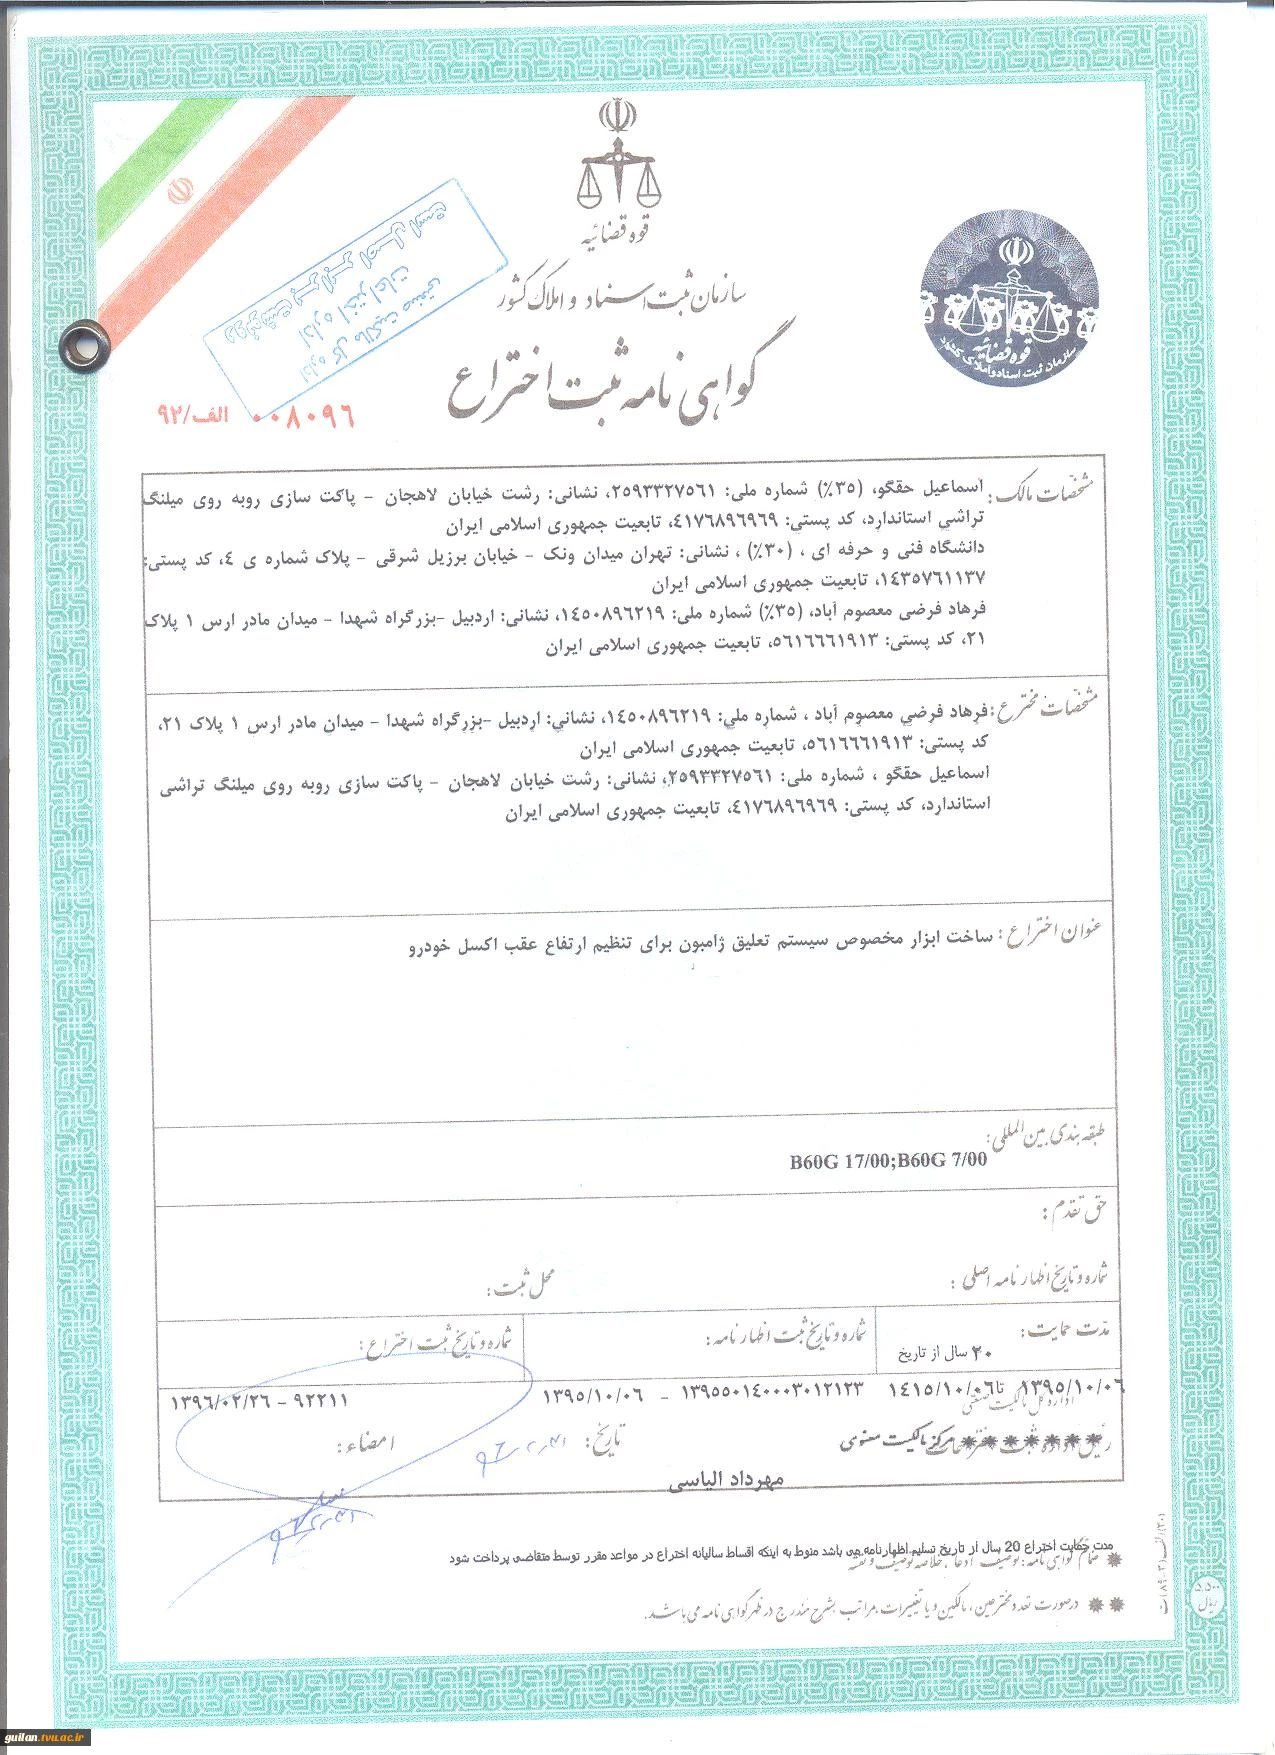 قوه قضائیه
سازمان ثبت اسناد و املاک کشور
گواهی نامه ثبت اختراع
قوه قضائیه
سازمان ثبت اسناد و املاک کشور
اداره کل مالکیت صنعتی
اداره اختراعات
الف/۹۲ ۰۰۸۰۹۶
مشخصات مالک: اسماعیل حقگو، (۳۵٪) شماره ملی: ۲۵۹۳۳۲۷۵۶۱، نشانی: رشت خیابان لاهجان - پاکت سازی روبه روی میلنگ
تراشي استاندارد، کد پستی: ۴۱۷۶۸۹۶۹۶۹، تابعیت جمهوری اسلامی ایران
دانشگاه فنی و حرفه ای ، (۳۰٪) ، نشانی: تهران میدان ونک - خیابان برزیل شرقی - پلاک شماره ی ۴، کد پستی:
۱۴۳۵۷۶۱۱۳۷، تابعیت جمهوری اسلامی ایران
فرهاد فرضی معصوم آباد، (۳۵٪) شماره ملی: ۱۴۵۰۸۹۶۲۱۹، نشانی: اردبیل -بزرگراه شهدا - میدان مادر ارس ۱ پلاک
۲۱، کد پستی: ۵۶۱۶۶۶۱۹۱۳، تابعیت جمهوری اسلامی ایران
مشخصات مخترع: فرهاد فرضي معصوم آباد ، شماره ملي: ۱۴۵۰۸۹۶۲۱۹، نشاني: اردبیل -بزرگراه شهدا - میدان مادر ارس ۱ پلاک ۲۱،
کد پستی: ۵۶۱۶۶۶۱۹۱۳، تابعیت جمهوری اسلامی ایران
اسماعیل حقگو ، شماره ملی: ۲۵۹۳۳۲۷۵۶۱، نشانی: رشت خیابان لاهجان - پاکت سازی روبه روی میلنگ تراشی
استاندارد، کد پستی: ۴۱۷۶۸۹۶۹۶۹، تابعیت جمهوری اسلامی ایران
عنوان اختراع: ساخت ابزار مخصوص سیستم تعلیق ژامبون برای تنظیم ارتفاع عقب اکسل خودرو
طبقه بندی بین المللی:
B60G 17/00;B60G 7/00
حق تقدم:
شماره و تاریخ اظهارنامه اصلی: محل ثبت:
مدت حمایت: شماره و تاریخ ثبت اظهارنامه: شماره و تاریخ ثبت اختراع:
۲۰ سال از تاریخ
۱۳۹۵/۱۰/۰۶ تا ۱۴۱۵/۱۰/۰۶ ۱۳۹۵۵۰۱۴۰۰۰۳۰۱۲۱۲۳ - ۱۳۹۵/۱۰/۰۶ ۹۲۲۱۱ - ۱۳۹۶/۰۲/۲۶
اداره کل مالکیت صنعتی
مرکز مالکیت معنوی تاریخ: امضاء:
مهرداد الیاسی
مدت حمایت اختراع 20 سال از تاریخ تسلیم اظهارنامه می باشد منوط به اینکه اقساط سالیانه اختراع در مواعد مقرر توسط متقاضی پرداخت شود
ضمائم گواهی نامه: توصیف، ادعا، خلاصه توصیف و نقشه
در صورت تعدد مخترعین، مالکین و یا تغییرات، مراتب بشرح مندرج در ظهر گواهی نامه می باشد.
۵.۵۰۰
ریال
guilan.tvu.ac.ir